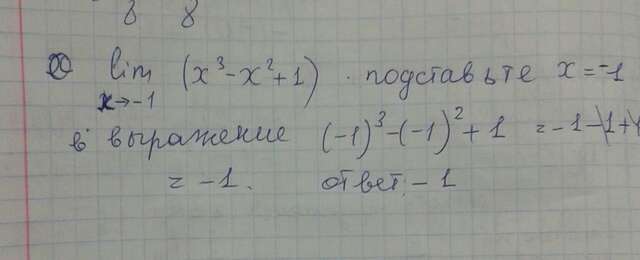 8 8
lim (x³-x²+1). подставьте x=-1
x→-1
в выражение (-1)³-(-1)²+1 =-1-1+1
= -1. ответ: -1